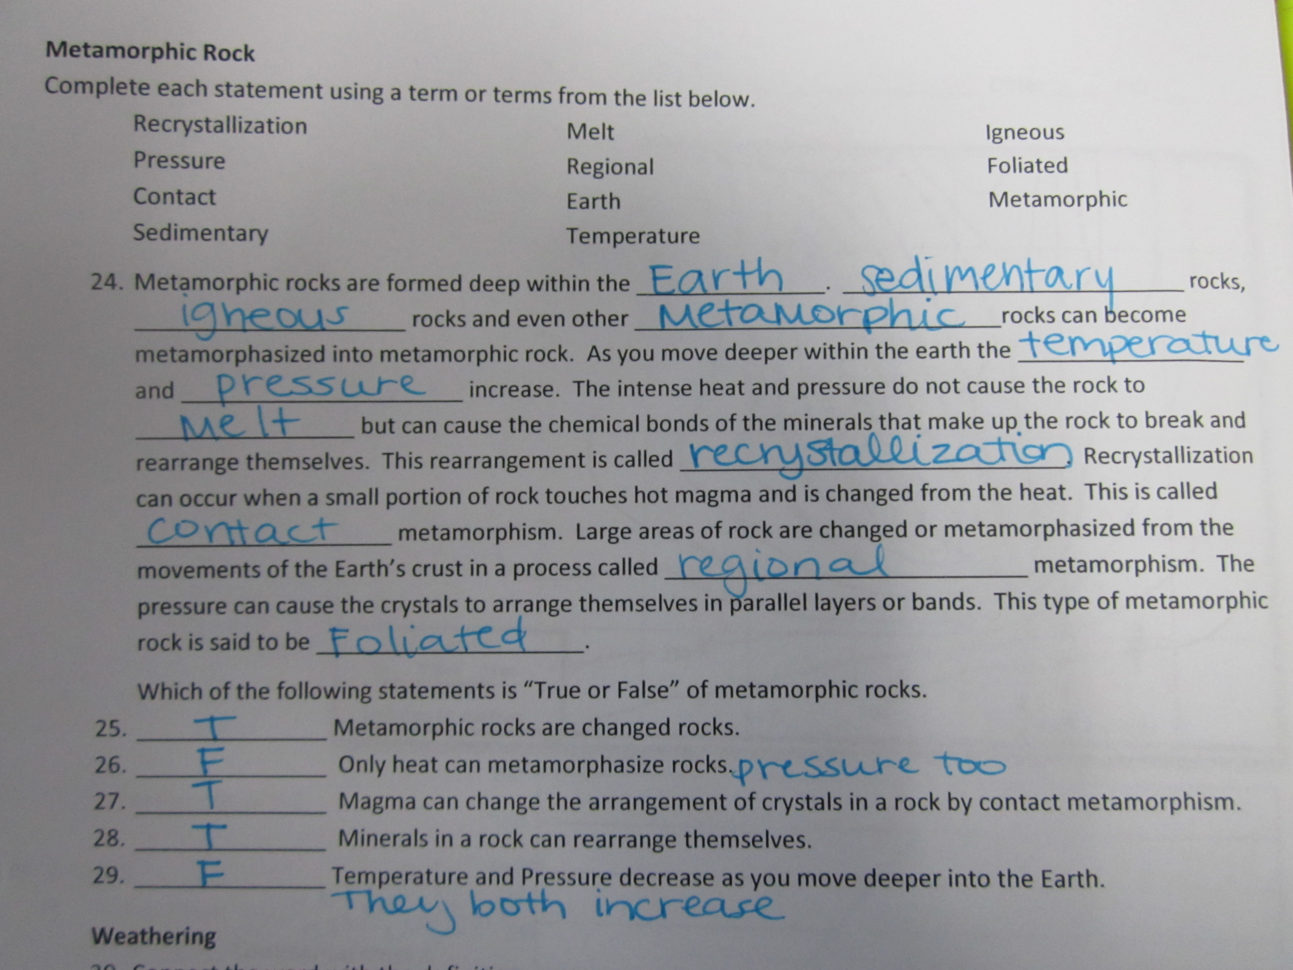 Metamorphic Rock
Complete each statement using a term or terms from the list below.
Recrystallization Melt Igneous
Pressure Regional Foliated
Contact Earth Metamorphic
Sedimentary Temperature
24. Metamorphic rocks are formed deep within the Earth. sedimentary rocks,
igneous rocks and even other Metamorphic rocks can become
metamorphasized into metamorphic rock. As you move deeper within the earth the temperature
and pressure increase. The intense heat and pressure do not cause the rock to
Melt but can cause the chemical bonds of the minerals that make up the rock to break and
rearrange themselves. This rearrangement is called recrystallization. Recrystallization
can occur when a small portion of rock touches hot magma and is changed from the heat. This is called
contact metamorphism. Large areas of rock are changed or metamorphasized from the
movements of the Earth's crust in a process called regional metamorphism. The
pressure can cause the crystals to arrange themselves in parallel layers or bands. This type of metamorphic
rock is said to be Foliated.
Which of the following statements is "True or False" of metamorphic rocks.
25. T Metamorphic rocks are changed rocks.
26. F Only heat can metamorphasize rocks. pressure too
27. T Magma can change the arrangement of crystals in a rock by contact metamorphism.
28. T Minerals in a rock can rearrange themselves.
29. F Temperature and Pressure decrease as you move deeper into the Earth.
They both increase
Weathering